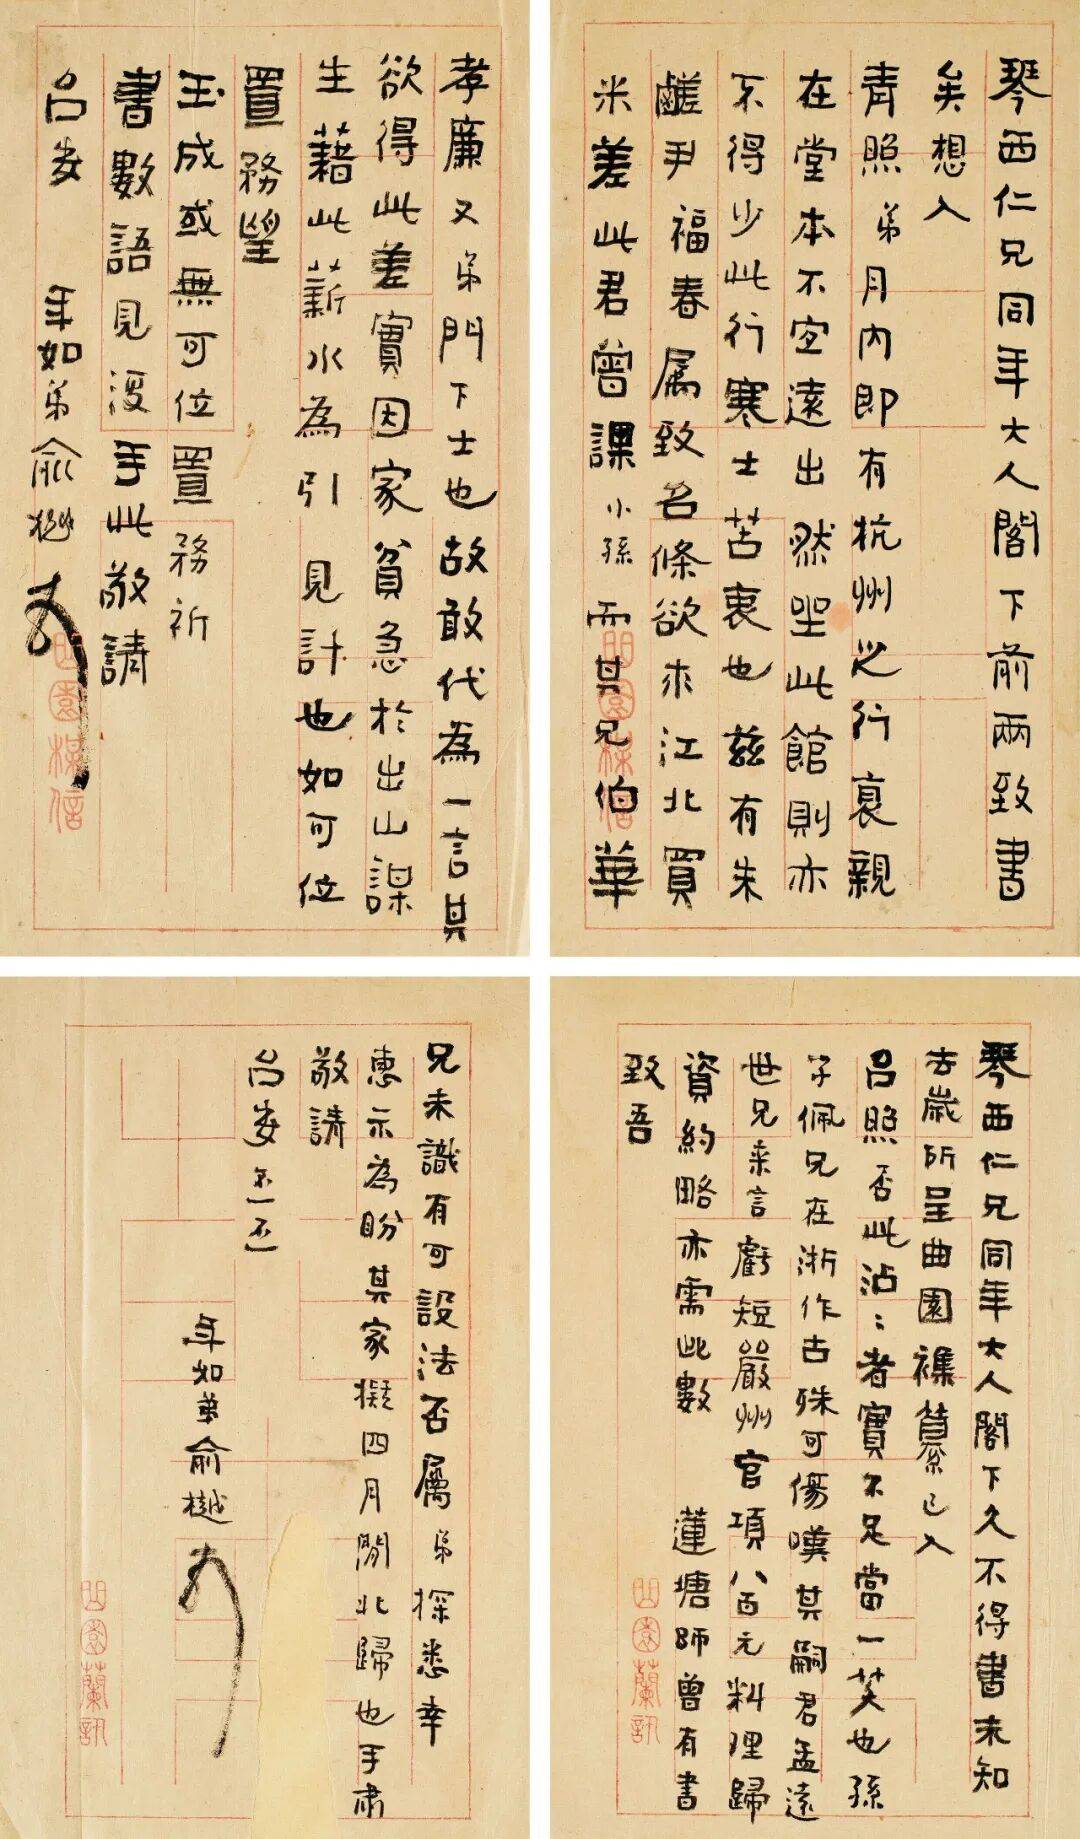 琴西仁兄同年大人閣下前兩致書
矣想入
青照弟月內即有杭州之行衰親
在堂本不宜遠出然坐此館則亦
不得少此行寒士苦衷也茲有朱
鹺尹福春属致名條欲求江北買
米差此君曾課小孫而其兄伯華
孝廉又弟門下士也故敢代為一言其
欲得此差實因家貧急於出山謀
生藉此薪水為引見計也如可位
置務望
玉成或無可位置務祈
書數語見復手此敬請
台安
年如弟俞樾
琴西仁兄同年大人閣下久不得書未知
去歲所呈曲園襍纂已入
台照否此沾沾者實不足當一笑也孫
子佩兄在浙作古殊可傷嘆其嗣君孟遠
世兄来言虧短嚴州官項八百元料理歸
資約略亦需此數蓮塘師曾有書
致吾
兄未識有可設法否属弟探悉幸
惠示為盼其家擬四月間北歸也手肅
敬請
台安不一不一
年如弟俞樾